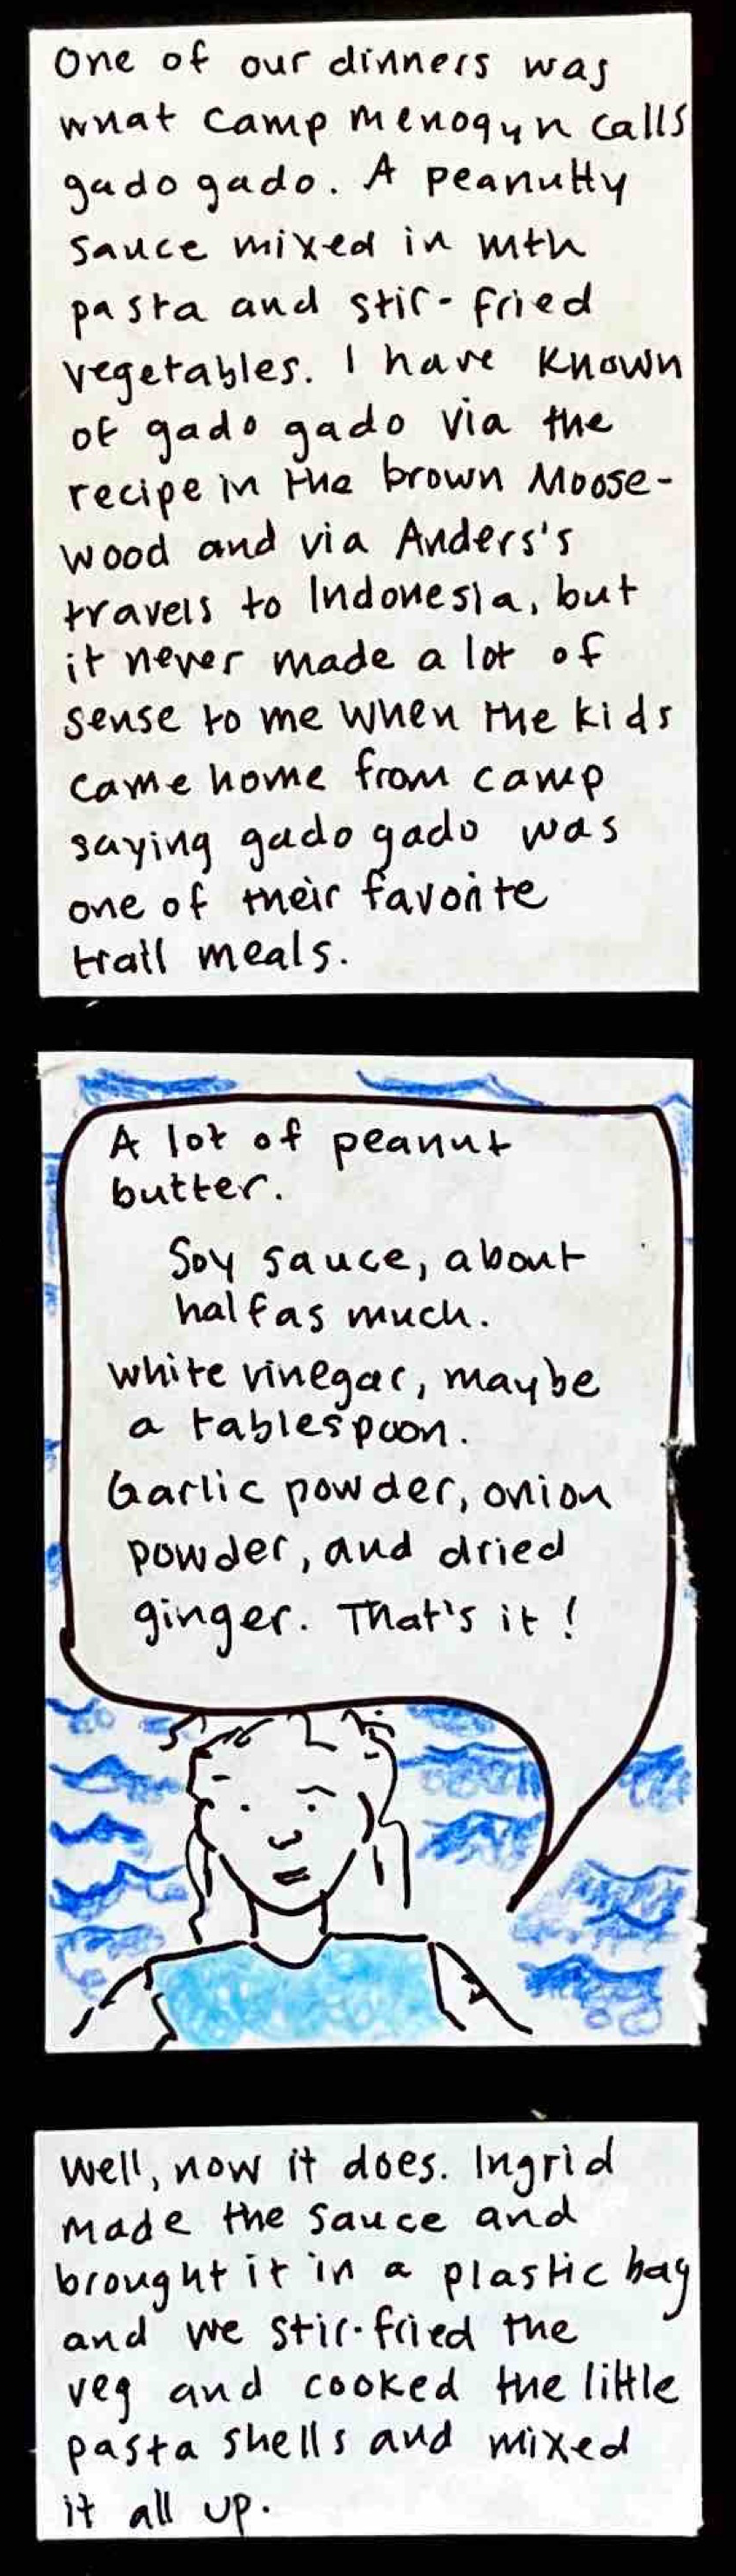 One of our dinners was
what Camp Menogyn calls
gado gado. A peanutty
sauce mixed in with
pasta and stir-fried
vegetables. I have known
of gado gado via the
recipe in the brown Moose-
wood and via Anders's
travels to Indonesia, but
it never made a lot of
sense to me when the kids
came home from camp
saying gado gado was
one of their favorite
trail meals.
A lot of peanut
butter.
Soy sauce, about
half as much.
White vinegar, maybe
a tablespoon.
Garlic powder, onion
powder, and dried
ginger. That's it!
Well, now it does. Ingrid
made the sauce and
brought it in a plastic bag
and we stir-fried the
veg and cooked the little
pasta shells and mixed
it all up.